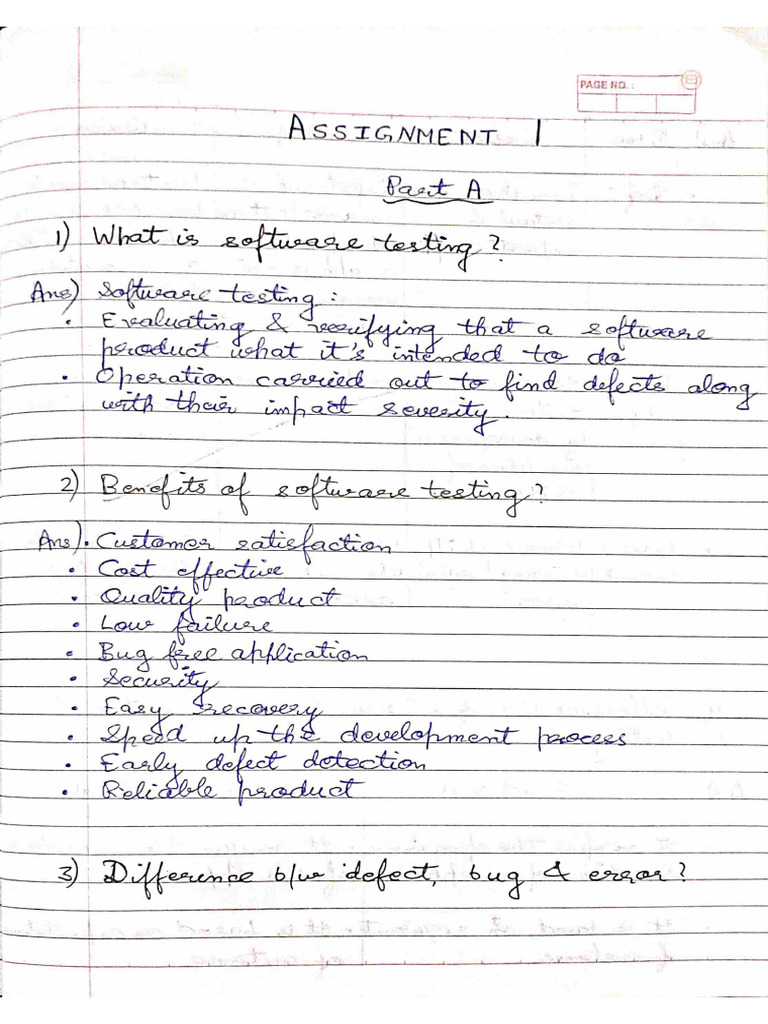 PAGE NO.:
ASSIGNMENT 1
Part A
1) What is software testing?
Ans) Software testing:
• Evaluating & verifying that a software
product what it's intended to do
• Operation carried out to find defects along
with their impact severity.
2) Benefits of software testing?
Ans) • Customer satisfaction
• Cost effective
• Quality product
• Low failure
• Bug free application
• Security
• Easy recovery
• Speed up the development process
• Early defect detection
• Reliable product
3) Difference b/w defect, bug & error?